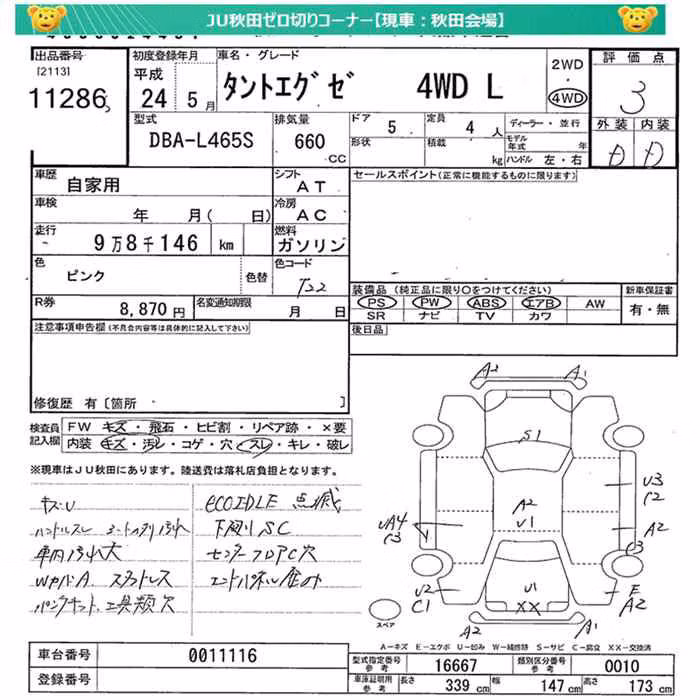 JU秋田ゼロ切りコーナー【現車：秋田会場】
出品番号
[2113]
11286
初度登録年月
平成
24 5月
車名・グレード
タントエグゼ 4WD L
2WD
・
4WD
評価点
3
型式
DBA-L465S
排気量
660
CC
ドア 5
定員 4 人
ディーラー・並行
形状
積載 kg
モデル年式 年
ハンドル 左・右
外装 内装
D D
車歴
自家用
シフト
AT
セールスポイント(正常に機能するものに限ります)
車検
年 月( 日)
冷房
AC
走行
9万8千146 km
燃料
ガソリン
色
ピンク
色替
色コード
T22
装備品(純正品に限り○をつけてください)
新車保証書
PS PW ABS エアB AW
有・無
SR ナビ TV カワ
R券
8,870円
名変通知期限
月 日
後日品
注意事項申告欄(不具合内容等は具体的に記入して下さい)
修復歴 有[箇所 ]
検査員記入欄
FW キズ・飛石・ヒビ割・リペア跡・×要
内装 キズ・汚レ・コゲ・穴・スレ・キレ・破レ
※現車はJU秋田にあります。陸送費は落札店負担となります。
キズU
ハンドルスレ シート内張り汚れ
車内汚れ大
WガバA スタットレス
パンクキット、工具類欠
ECO IDLE 点滅
下廻りSC
センターフロアC穴
エンドパネル歪み
A2 A1
S1
A2
U1
UA4
C3
U3
C2
A2
C3
U2
C1
U1
XX
E
A2
A2 A1
スペア
A－キズ E－エクボ U－凹み W－補修跡 S－サビ C－腐食 XX－交換済
車台番号 0011116
登録番号
型式指定番号参考 16667
類別区分番号参考 0010
車庫証明用参考 長さ 339 cm 幅 147 cm 高さ 173 cm